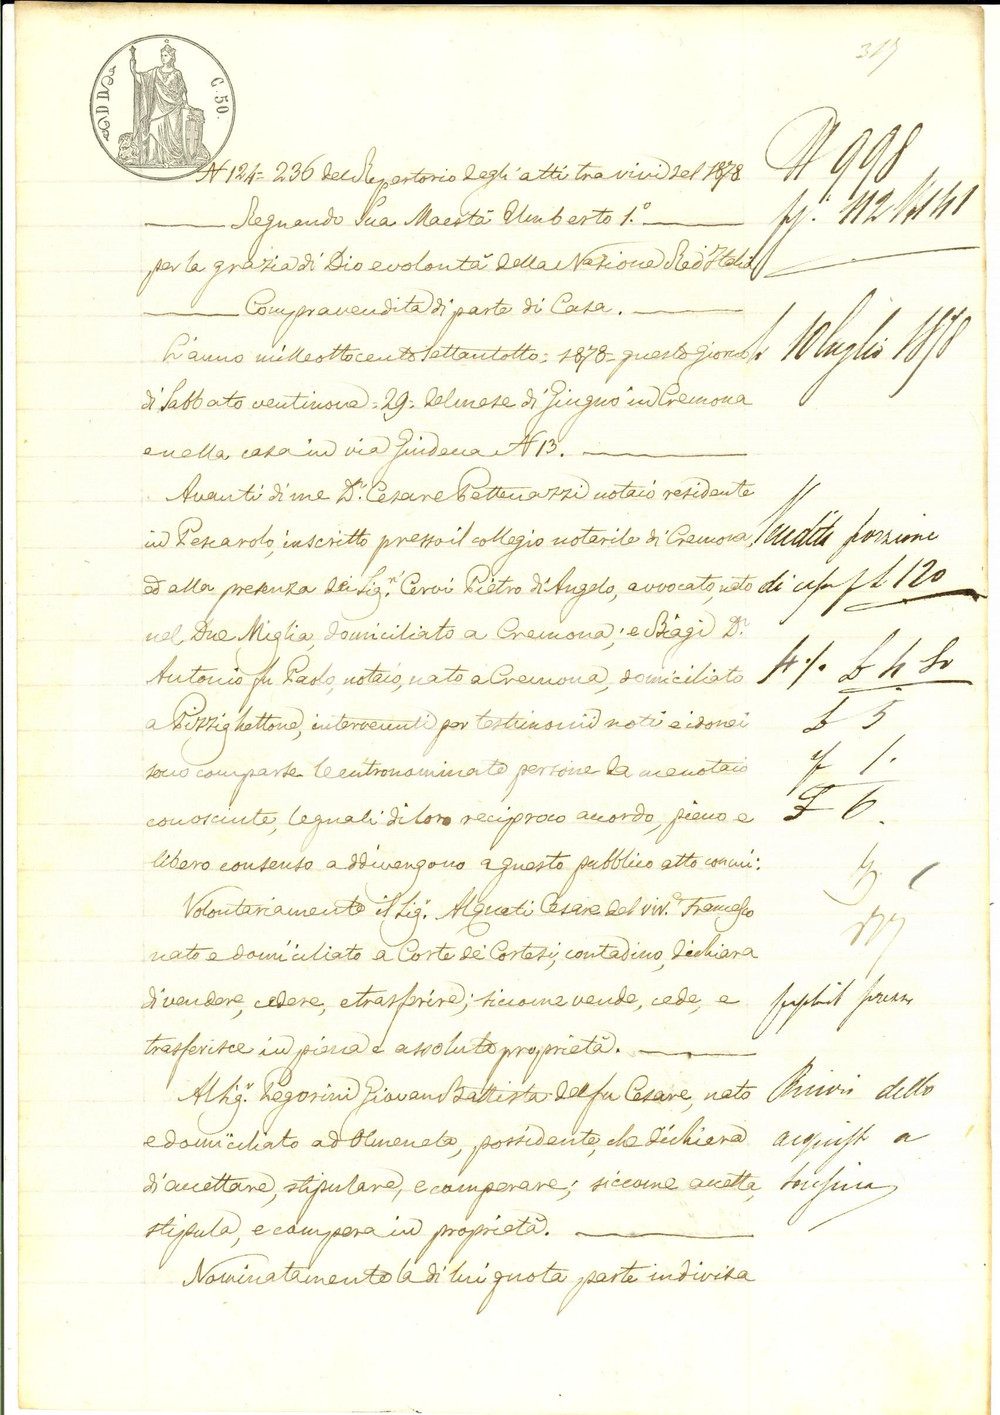 C. 50.
N 124 = 236 del Repertorio degli atti tra vivi del 1878
Regnando Sua Maestà Umberto 1.°
per la grazia di Dio e volontà della Nazione Re d'Italia
Compravendita di parte di Casa.
L'anno milleottocento settantotto = 1878 = questo giorno
di Sabbato ventinove = 29 = del mese di Giugno in Cremona
e nella casa in via Guidena N 13.
Avanti di me D.r Cesare Pettenazzi notaio residente
in Pescarolo, inscritto presso il collegio notarile di Cremona,
ed alla presenza dei Sig.ri Cervi Pietro di Angelo, avvocato, nato
nel Due Miglia, domiciliato a Cremona; e Biagi D.r
Antonio fu Paolo, notaio, nato a Cremona, domiciliato
a Pizzighettone, intervenuti per testimonii noti e idonei
sono comparse le entronominate persone da me notaio
conosciute, le quali di loro reciproco accordo, pieno e
libero consenso addivengono a questo pubblico atto con cui:
Volontariamente il Sig.r Alquati Cesare del viv.e Francesco
nato e domiciliato a Corte de' Cortesi, contadino, dichiara
di vendere, cedere, e trasferire; siccome vende, cede, e
trasferisce in piena e assoluta proprietà.
Al Sig.r Pegorini Giovan Battista del fu Cesare, nato
e domiciliato ad Olmeneta, possidente, che dichiara
di accettare, stipulare, e comperare; siccome accetta,
stipula, e compera in proprietà.
Nominatamente la di lui quota parte indivisa
N 998
10 luglio 1878
Vendita porzione
di casa f L 120
4 %
5
1.
6.
dello
a